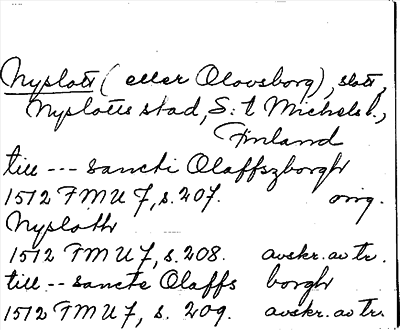 Nyslott (eller Olovsborg), slott,
Nyslotts stad, S:t Michels l.,
Finland
till --- sancti Olaffszborgh
1512 FMU 7, s. 207. orig.
Nysloth
1512 FMU 7, s. 208. avskr. av tr.
till -- sancte Olaffs borgh
1512 FMU 7, s. 209. avskr. av tr.